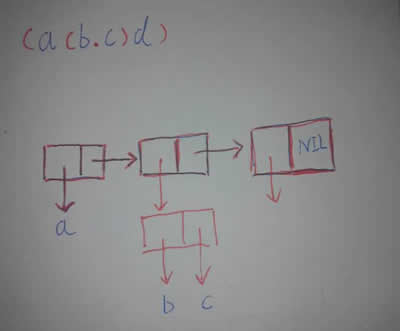 (a (b.c) d)
NIL
a
b c